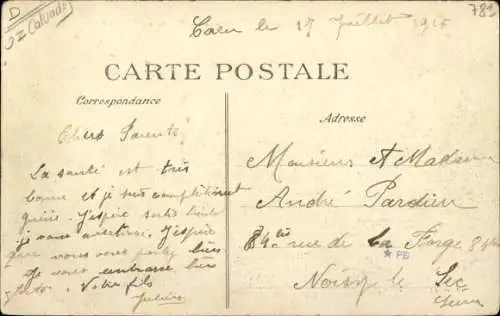 D
Calvados
Caen le 17 Juillet 1915
789
CARTE POSTALE
Correspondance
Adresse
Chers Parents
La santé est très
bonne et je suis complètement
guéris. J'espère sortir bientôt
je vous avertirai. J'espère
que vous vous portez bien
Je vous embrasse bien
fort. Votre fils
Monsieur et Madame
André Pardieu
rue de la Forge
PB
Noisy le Sec
Seine